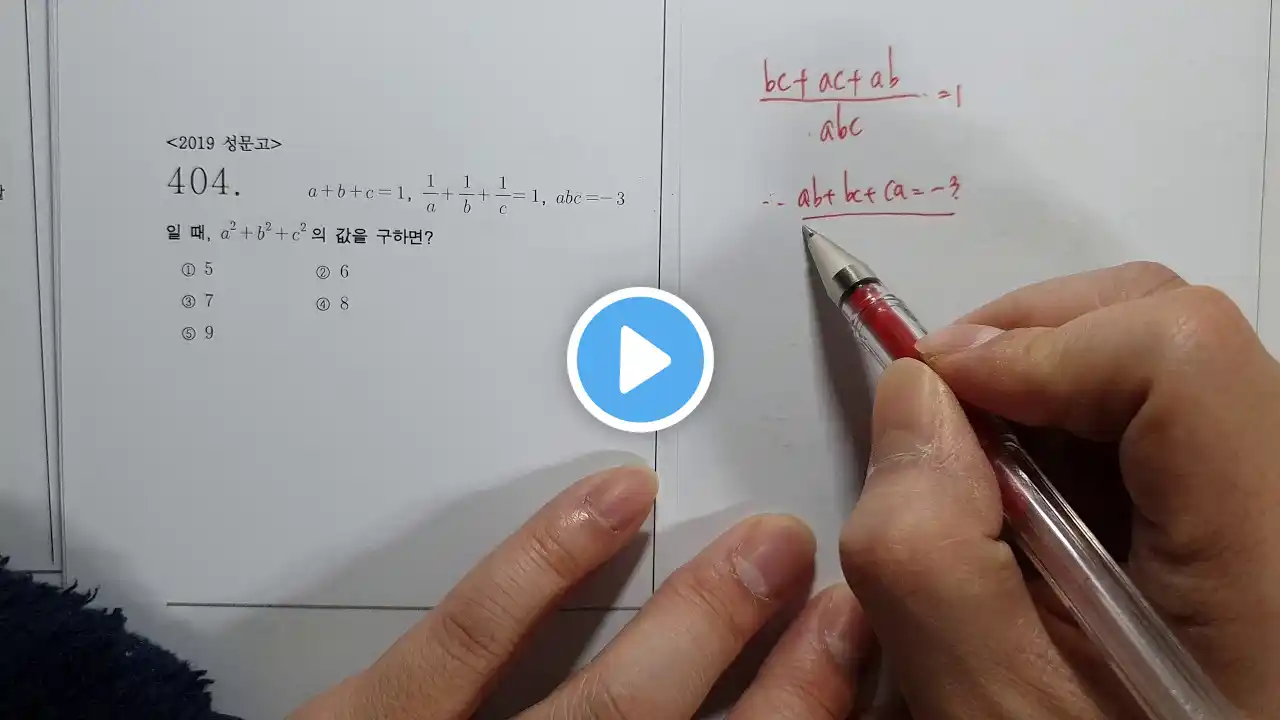 <2019 성문고>
404. a+b+c=1, 1/a+1/b+1/c=1, abc=-3
일 때, a²+b²+c²의 값을 구하면?
① 5 ② 6
③ 7 ④ 8
⑤ 9
(bc+ac+ab)/abc =1
∴ ab+bc+ca=-3